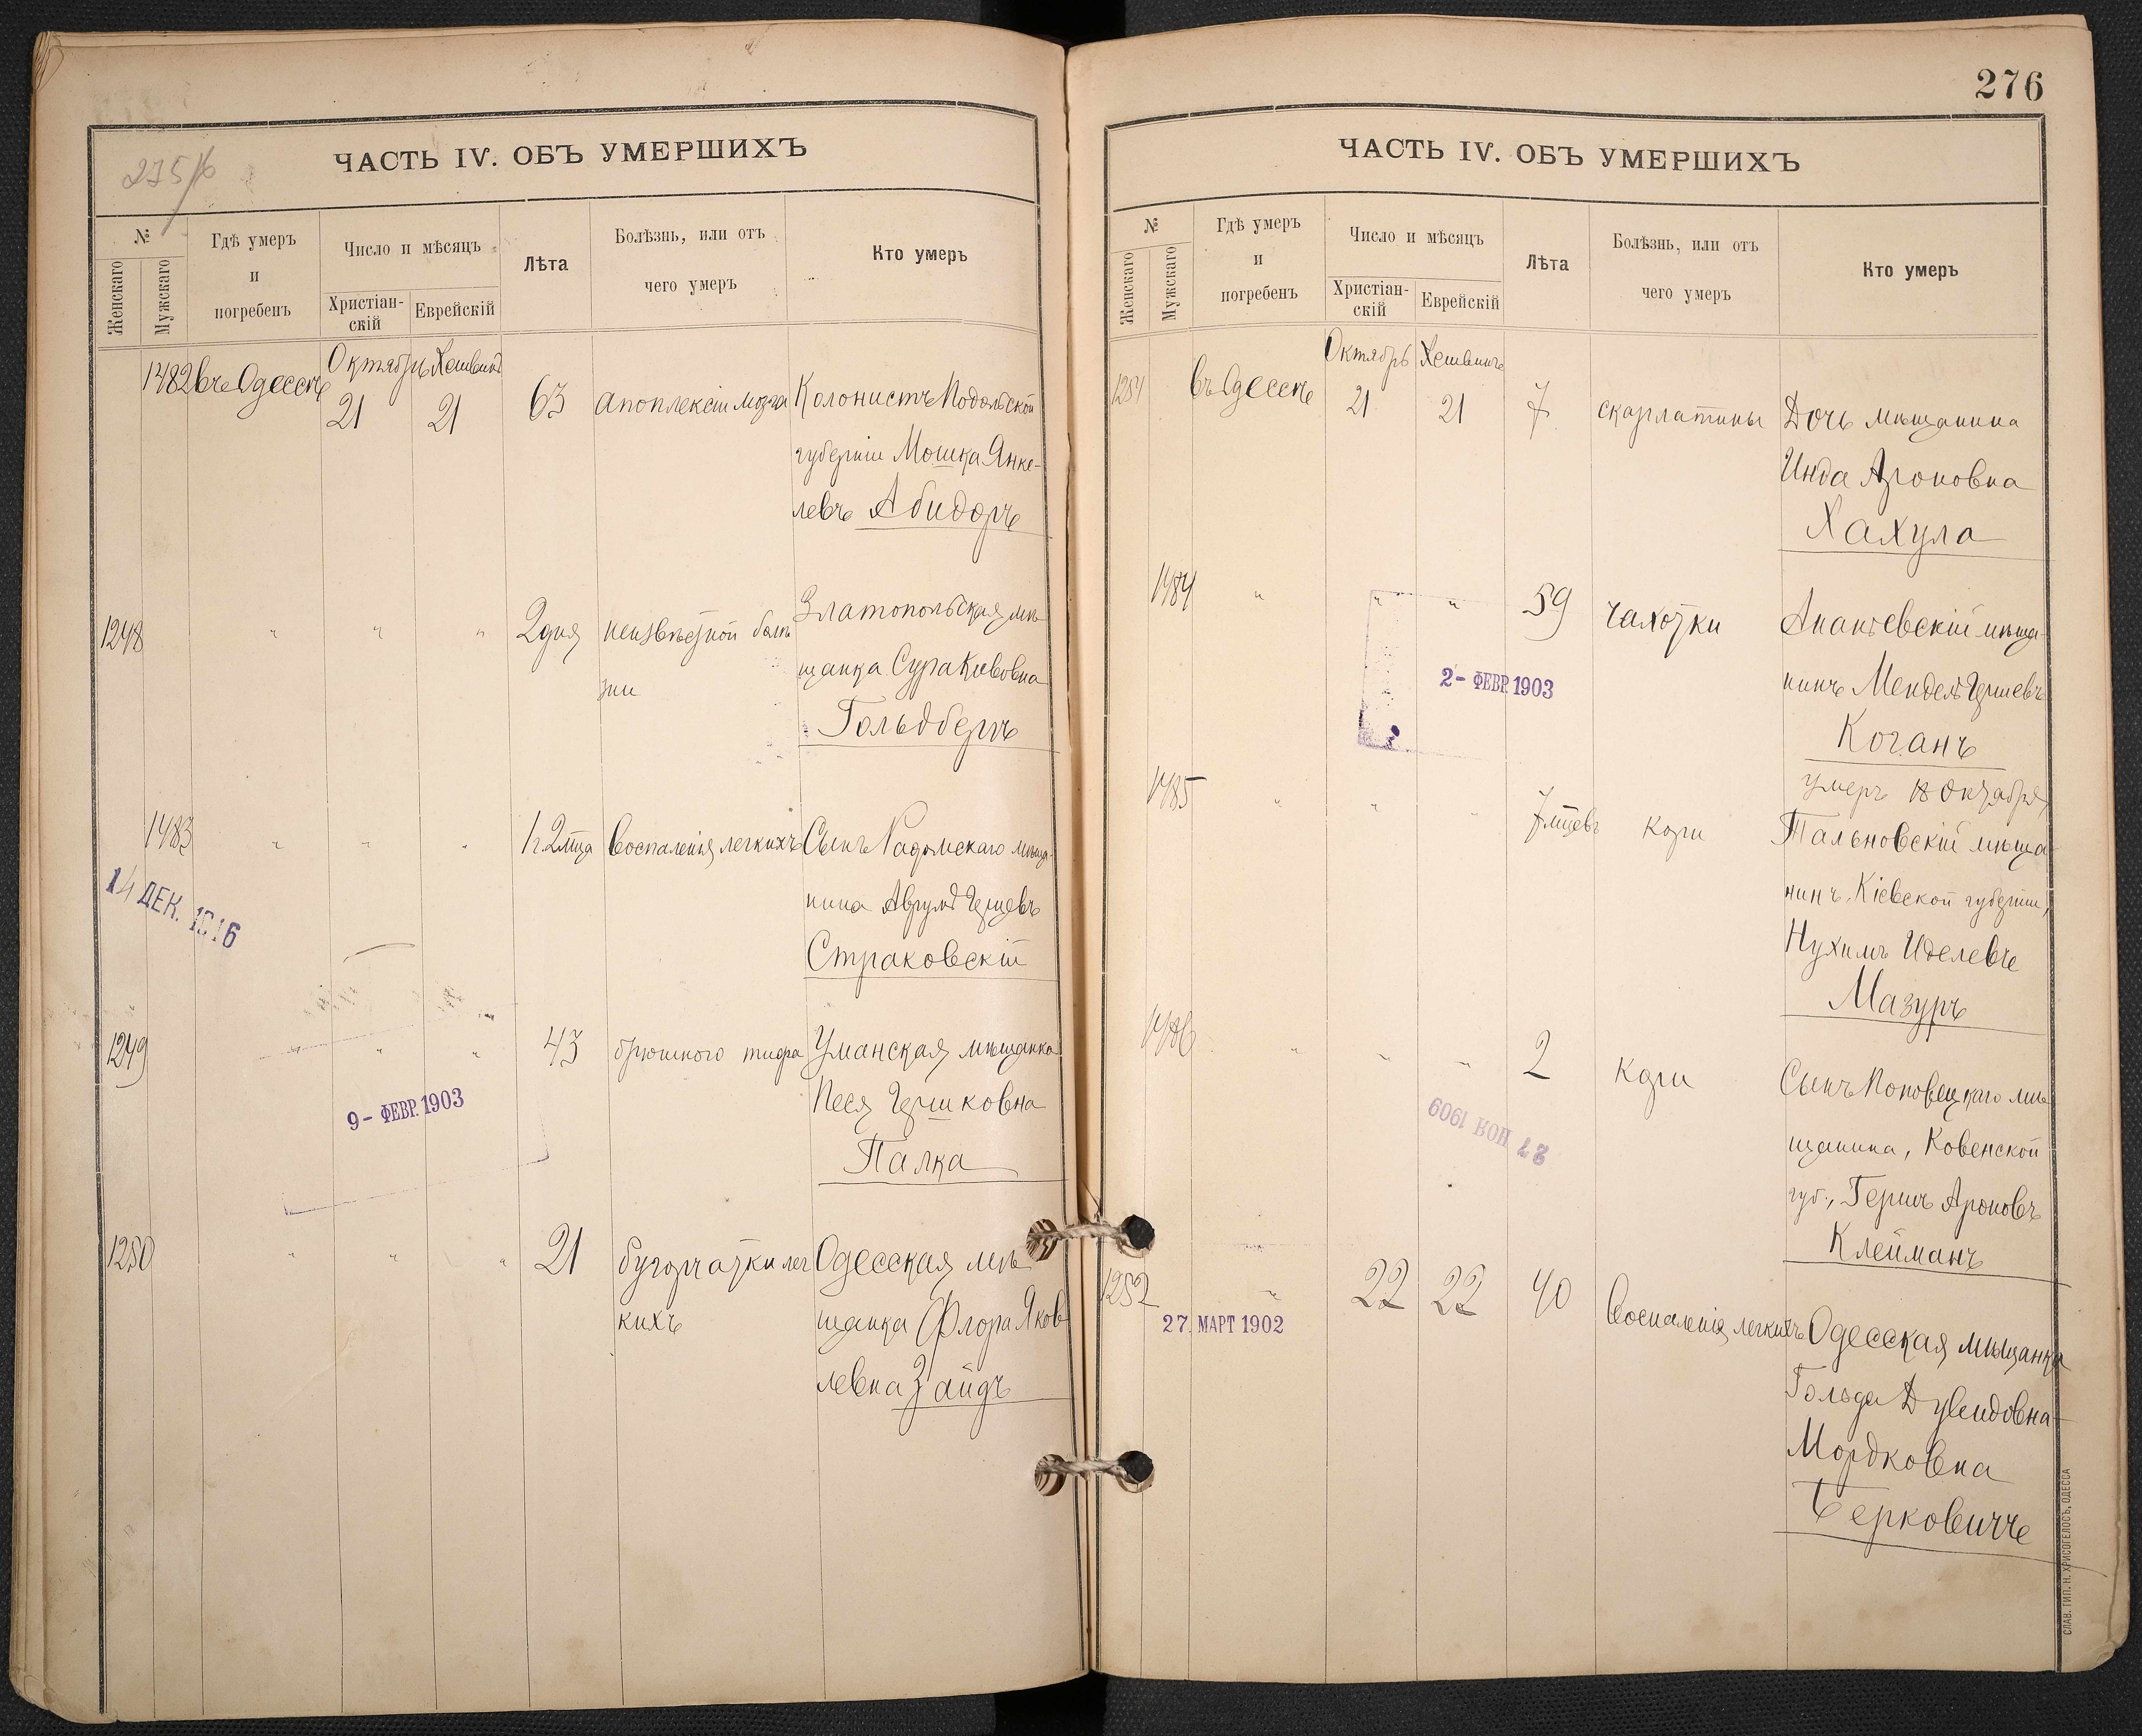 275/6
ЧАСТЬ IV. ОБЪ УМЕРШИХЪ
№
Женскаго
Мужскаго
Гдѣ умеръ
и
погребенъ
Число и мѣсяцъ
Христіан-
скій
Еврейскій
Лѣта
Болѣзнь, или отъ
чего умеръ
Кто умеръ
Октябрь Хешванъ
1482 въ Одессѣ 21 21 63 апоплексіи мозга Колонистъ Подольской
губерніи Мошка Янке-
левъ Абидоръ
1248 " " " 2 дня неизвѣстной болѣ Златопольская мѣ
зни щанка Сура Кивовна
Гольдбергъ
1483 " " " 1 г. 2 м-ца воспаленія легкихъ Сынъ Радомскаго мѣща-
нина Аврумъ Гершевъ
Страковскій
14 ДЕК. 1916
1249 " " " 43 брюшного тифа Уманская мѣщанка
Песя Гершковна
Палка
9 – ФЕВР. 1903
1250 " " " 21 бугорчатки лег Одесская мѣ
кихъ щанка Флора Яков
левна Зайдъ
276
ЧАСТЬ IV. ОБЪ УМЕРШИХЪ
№
Женскаго
Мужскаго
Гдѣ умеръ
и
погребенъ
Число и мѣсяцъ
Христіан-
скій
Еврейскій
Лѣта
Болѣзнь, или отъ
чего умеръ
Кто умеръ
Октябрь Хешванъ
1251 въ Одессѣ 21 21 7 скарлатины Дочь мѣщанина
Инда Ароновна
Хахула
1484 " " " 59 чахотки Ананьевскій мѣща-
нинъ Мендель Гершевъ
Коганъ
умеръ 18 Октября
2 – ФЕВР. 1903
1485 " " " 7 м-цевъ кори Тальновскій мѣща-
нинъ, Кіевской губерніи,
Нухимъ Иделевъ
Мазуръ
1486 " " " 2 кори Сынъ мѣ
щанина, Ковенской
губ., Гершъ Ароновъ
Клейманъ
27 НОЯ 1909
1252 " 22 22 40 воспаленія легкихъ Одесская мѣщанка
Гольда Дувидовна-
Мордковна
Берковичъ
27 МАРТ 1902
СЛАВ. ТИП. Н. ХРИСОГЕЛОСЪ, ОДЕССА